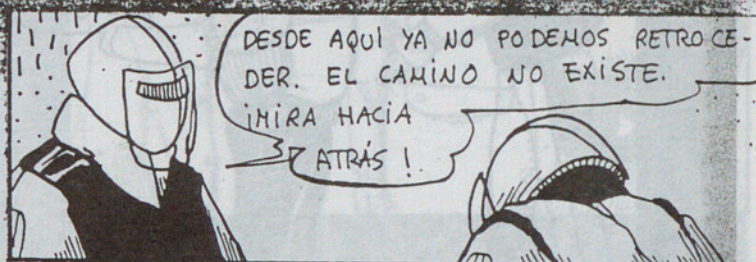 DESDE AQUÍ YA NO PODEMOS RETROCE-
DER. EL CAMINO NO EXISTE.
¡MIRA HACIA
ATRÁS!